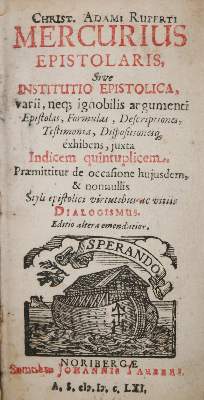 CHRIST. ADAMI RUPERTI
MERCURIUS
EPISTOLARIS,
Sive
INSTITUTIO EPISTOLICA,
varii, neq; ignobilis argumenti
Epistolas, Formulas, Descriptiones,
Testimonia, Dispositiones
exhibens, juxta
Indicem quintuplicem.
Præmittitur de occasione hujusdem,
& nonnullis
Styli epistolici virtutibus ac vitiis
DIALOGISMUS.
Editio altera emendatior.
SPERANDO
NORIBERGÆ
JOHANNIS TAUBERI.
A. S. cIɔ. Iɔ. c. LXI.